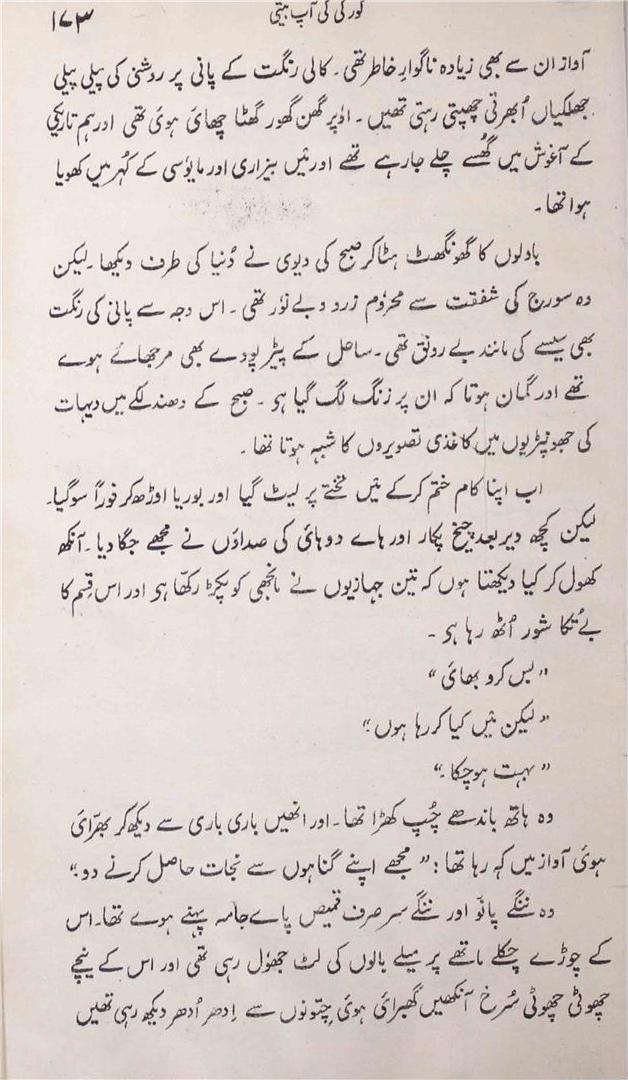 گورکی کی آپ بیتی
۱۷۳
آواز ان سے بھی زیادہ ناگوارِ خاطر تھی۔ کالی رنگت کے پانی پر روشنی کی پیلی پیلی
جھلکیاں اُبھرتی چھپتی رہتی تھیں۔ اوپر گھن گھور گھٹا چھائ ہوئ تھی اور ہم تاریکی
کے آغوش میں گھُسے چلے جارہے تھے اور مَیں بیزاری اور مایوسی کے کُہر میں کھویا
ہوا تھا۔
بادلوں کا گھونگھٹ ہٹاکر صبح کی دیوی نے دُنیا کی طرف دیکھا۔ لیکن
وہ سورج کی شفقت سے محروم زرد و بے نور تھی۔ اس وجہ سے پانی کی رنگت
بھی سیسے کی مانند بے رونق تھی۔ ساحل کے پیڑ پودے بھی مرجھائے ہوے
تھے اور گمان ہوتا کہ ان پر زنگ لگ گیا ہو۔ صبح کے دھندلکے میں دیہات
کی جھونپڑیوں میں کاغذی تصویروں کا شبہ ہوتا تھا۔
اب اپنا کام ختم کرکے مَیں تختے پر لیٹ گیا اور بوریا اوڑھ کر فوراً سوگیا۔
لیکن کچھ دیر بعد چیخ پکار اور ہاے دوہائ کی صداؤں نے مجھے جگا دیا۔ آنکھ
کھول کر کیا دیکھتا ہوں کہ تین جہازیوں نے مانجھی کو پکڑ رکھّا ہو اور اس قِسم کا
بے تُکا شور اُٹھ رہا ہو۔
”بس کرو بھائ“
”لیکن مَیں کیا کررہا ہوں؟“
”بہت ہوچکا۔“
وہ ہاتھ باندھے چُپ کھڑا تھا۔ اور انھیں باری باری سے دیکھ کر بھرّائ
ہوئ آواز میں کہ رہا تھا: ”مجھے اپنے گناہوں سے نجات حاصل کرنے دو۔“
وہ ننگے پانو اور ننگے سر صرف قمیص پاے جامہ پہنے ہوے تھا۔ اس
کے چوڑے چکلے ماتھے پر میلے بالوں کی لٹ جھول رہی تھی اور اس کے نیچے
چھوٹی چھوٹی سُرخ آنکھیں گھبرائ ہوئ چتونوں سے اِدھر اُدھر دیکھ رہی تھیں